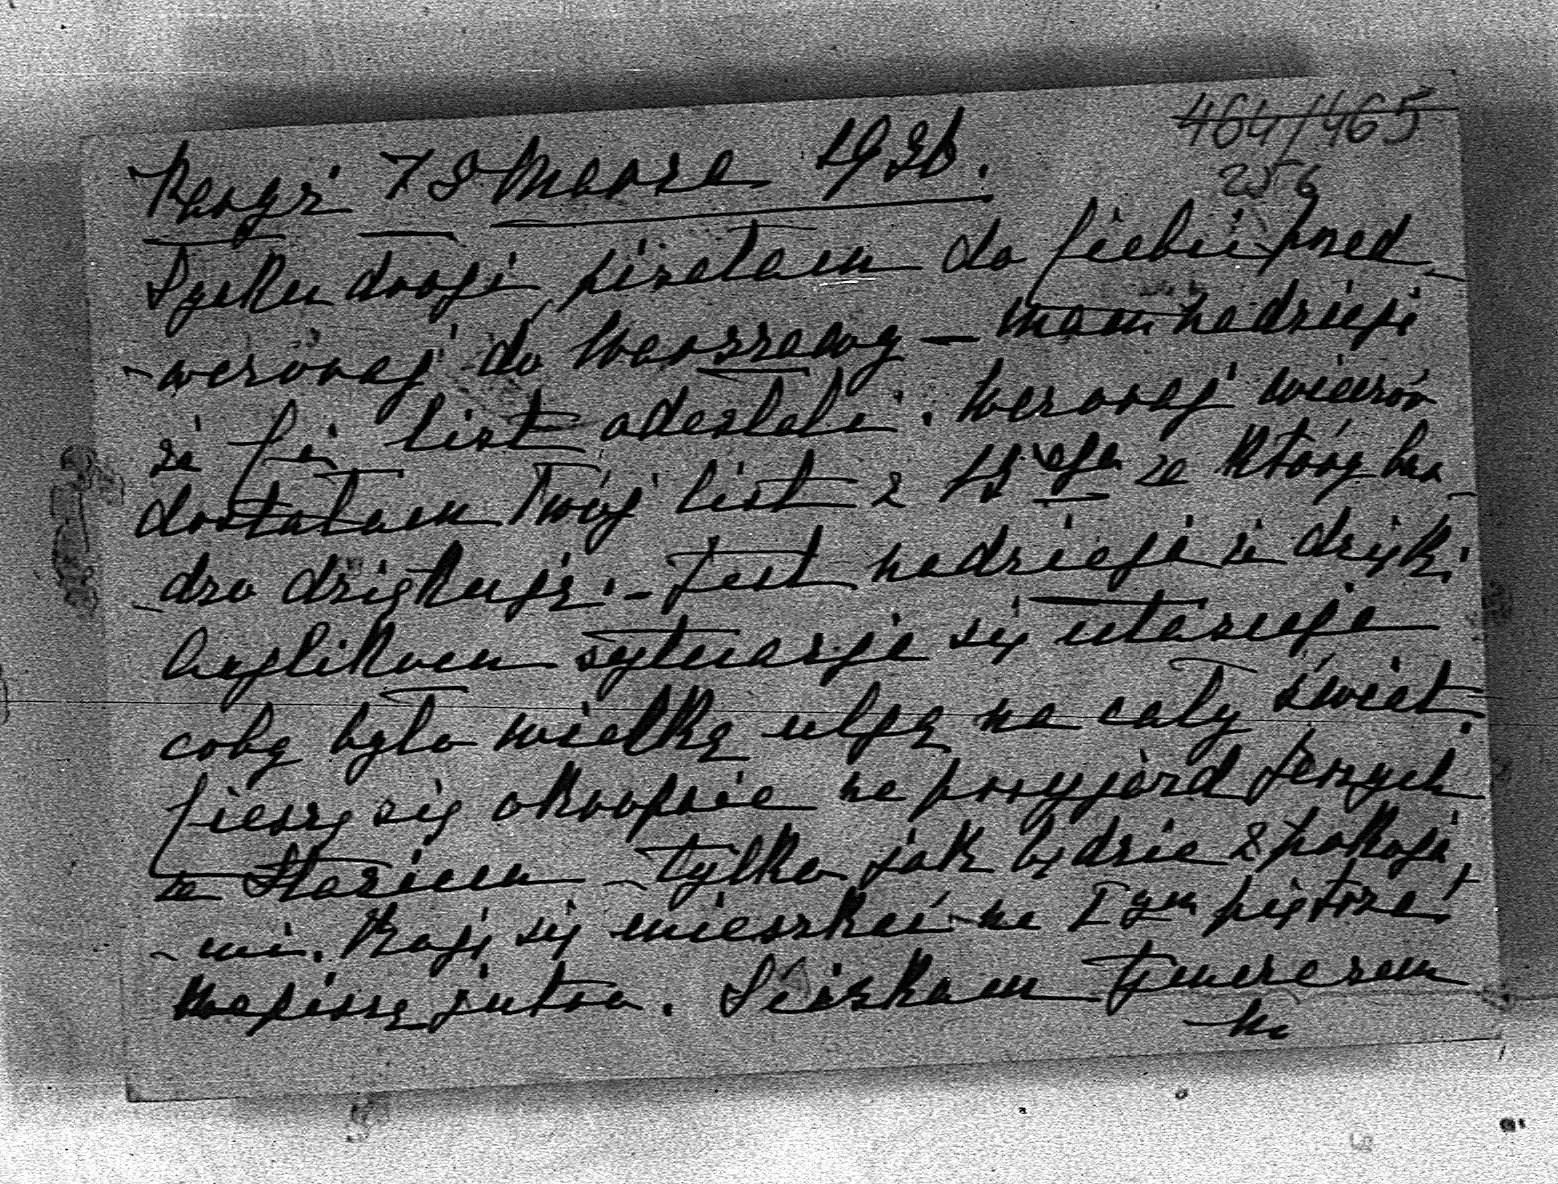 464/465
256
7 Marza 1936.
drogi, pisałam do Ciebie przed-
-wczoraj do Warszawy — mam nadzieję
że Ci list odesłali. Wczoraj wieczór
dostałam Twój list z za który bar-
-dzo dziękuję. - Jest nadzieja że dzięki
Anglikom sytuacja się
coby było wielką ulgą na cały świat.
Cieszę się okropnie na przyjazd Jerzych
ze Stasiem - tylko jak będzie z pokoja-
-mi. się mieszkać na I ym piętrze!
Napiszę jutro. Ściskam tymczasem